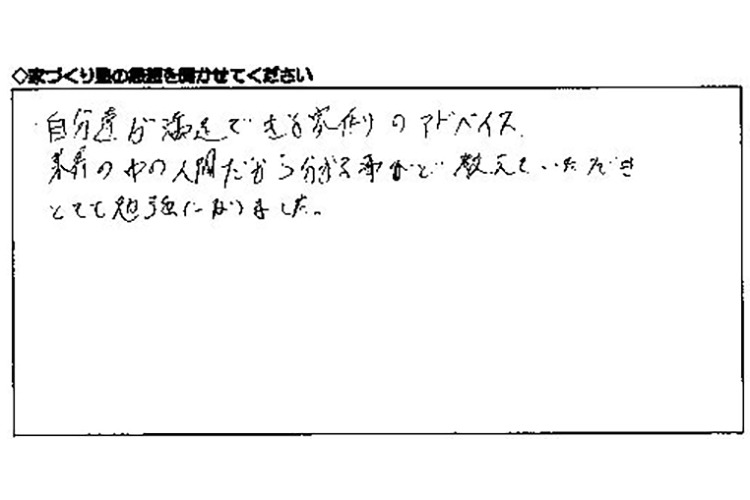 ◇家づくり塾の感想を聞かせてください
自分達が満足できる家作りのアドバイス.
業界の中の人間だから分かる事など教えていただき
とても勉強になりました。